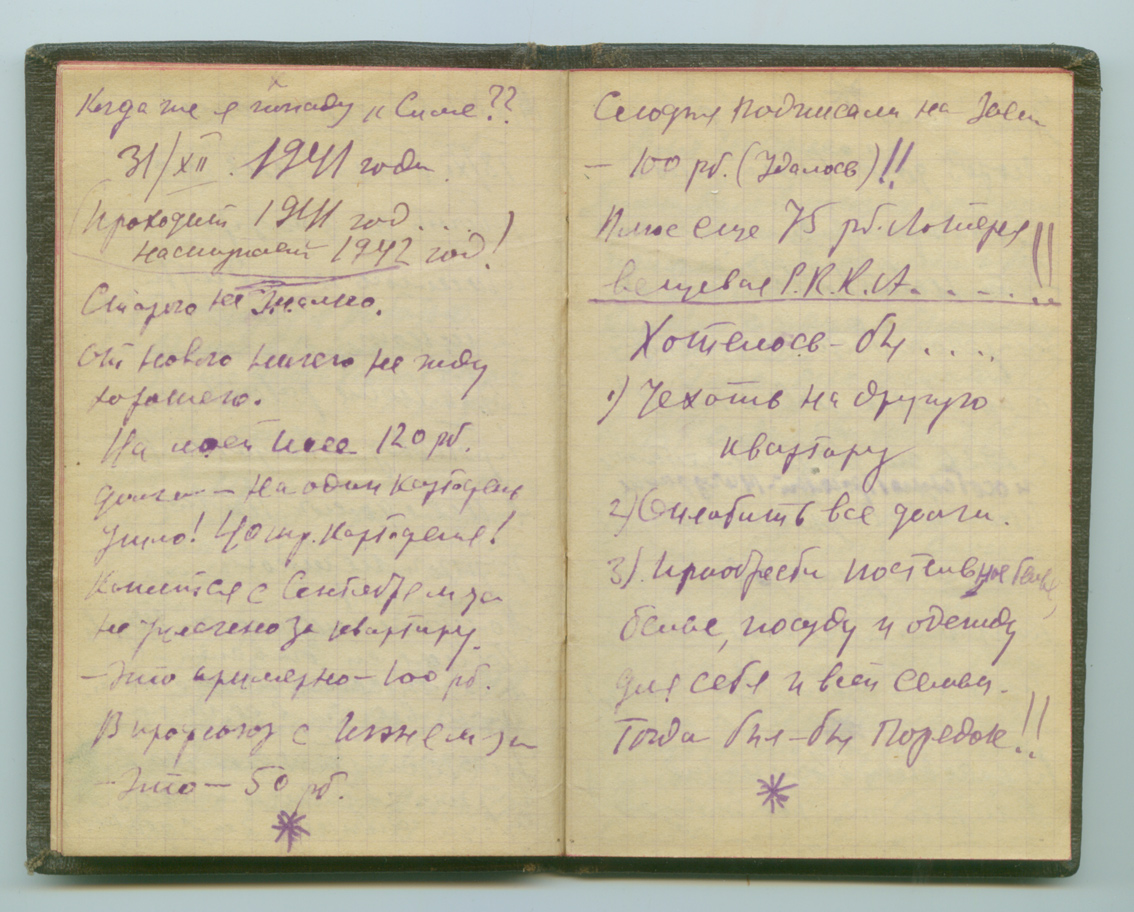 Когда же я попаду к Симе??
31/XII. 1941 года
Проходит 1941 год....
наступает 1942 год!
Старого не жалко.
от нового ничего не жду
хорошего.
На моей шее 120 рб.
долга — на один картофель
ушло! 40 кгр. картофеля!
с Сентября м-ца
не уплачено за квартиру.
— Это примерно — 100 рб.
В профсоюз с Июня м-ца
— Это — 50 рб.
Сегодня подписали на Заем
— 100 рб. (Удалось)!!
Плюс еще 75 рб. Лотерея!!
вещевая Р.К.К.А......
Хотелось-бы....
1) Уехать на другую
квартиру
2) все долги.
3). Приобрести постельное
белье, посуду и одежду
для себя и всей семьи.
Тогда был-бы порядок!!